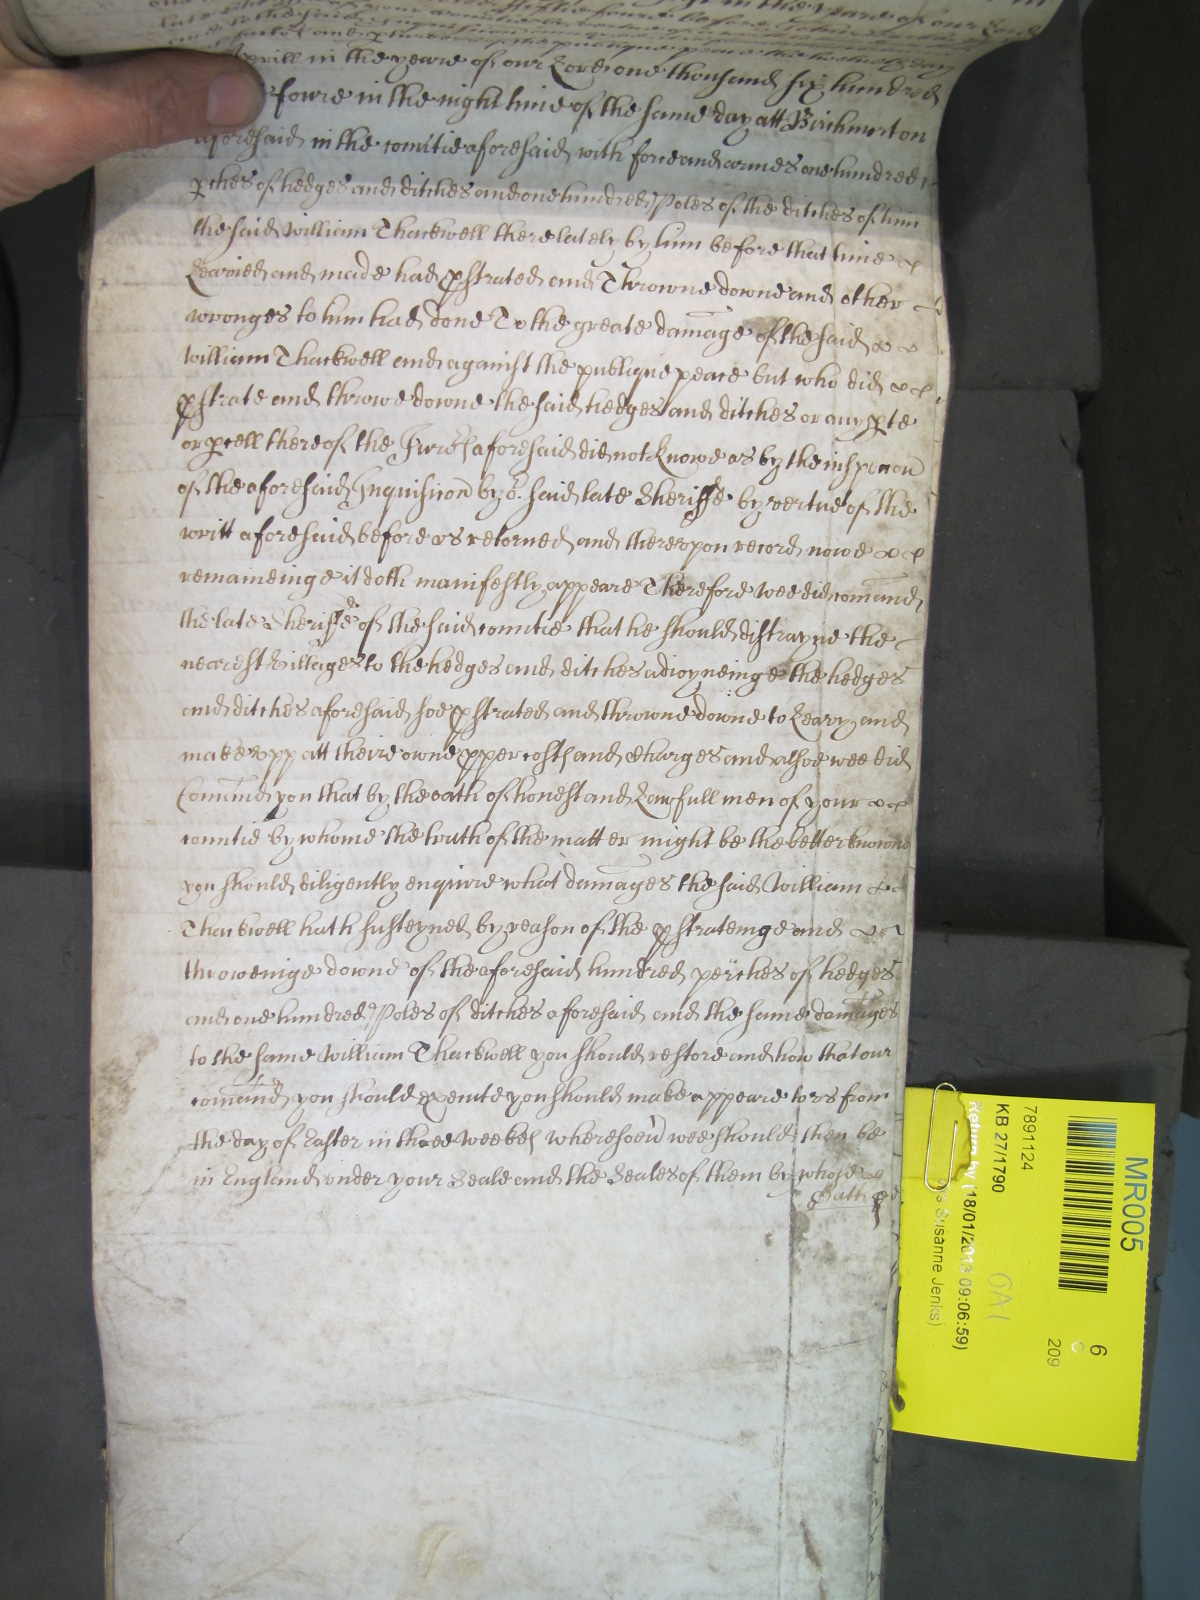 in the yeare of our Lord
the publique peace
Aprill in the yeare of our Lord one thousand six hundred
fowre in the night time of the same day att Birchmorton
aforesaid in the comitie aforesaid with force and armes one hundred
pches of hedges and ditches and one hundred Poles of the ditches of him
the said William Thackwell there lately by him before that time
Leavied and made had pstrated and Throwne downe and other
wronges to him had done To the greate damage of the said
William Thackwell and against the publique peace but who did
pstrate and throwe downe the said hedges and ditches or any pte
or pcell thereof the Jurors aforesaid did not knowe as by the inspeccon
of the aforesaid Inquisicon by or. said late Sheriffe by vertue of the
writt aforesaid before us retorned and thereupon record nowe
remaineinge it doth manifestly appeare Therefore wee did comand
the late Sheriffe of the said countie that he should distrayne the
nearest Villages to the hedges and ditches adioyneinge the hedges
and ditches aforesaid soe pstrated and throwne downe to Leavy and
make upp att theire owne pper costs and charges and alsoe wee did
Comand you that by the oath of honest and Lawfull men of your
countie by whome the truth of the matter might be the better knowne
you should diligently enquire what damages the said William
Thackwell hath susteyned by reason of the pstrateinge and
throweinge downe of the aforesaid hundred perches of hedges
and one hundred Poles of ditches aforesaid and the same damages
to the same William Thackwell you should restore and how that our
comand you should execute you should make appeare to us from
the day of Easter in three weekes wheresoevr wee should then be
in England under your Seale and the Seales of them by whose
Oath
MR005
6
209
7891124
KB 27/1790
Return by (18/01/2013 09:06:59)
Susanne Jenks)
GA1